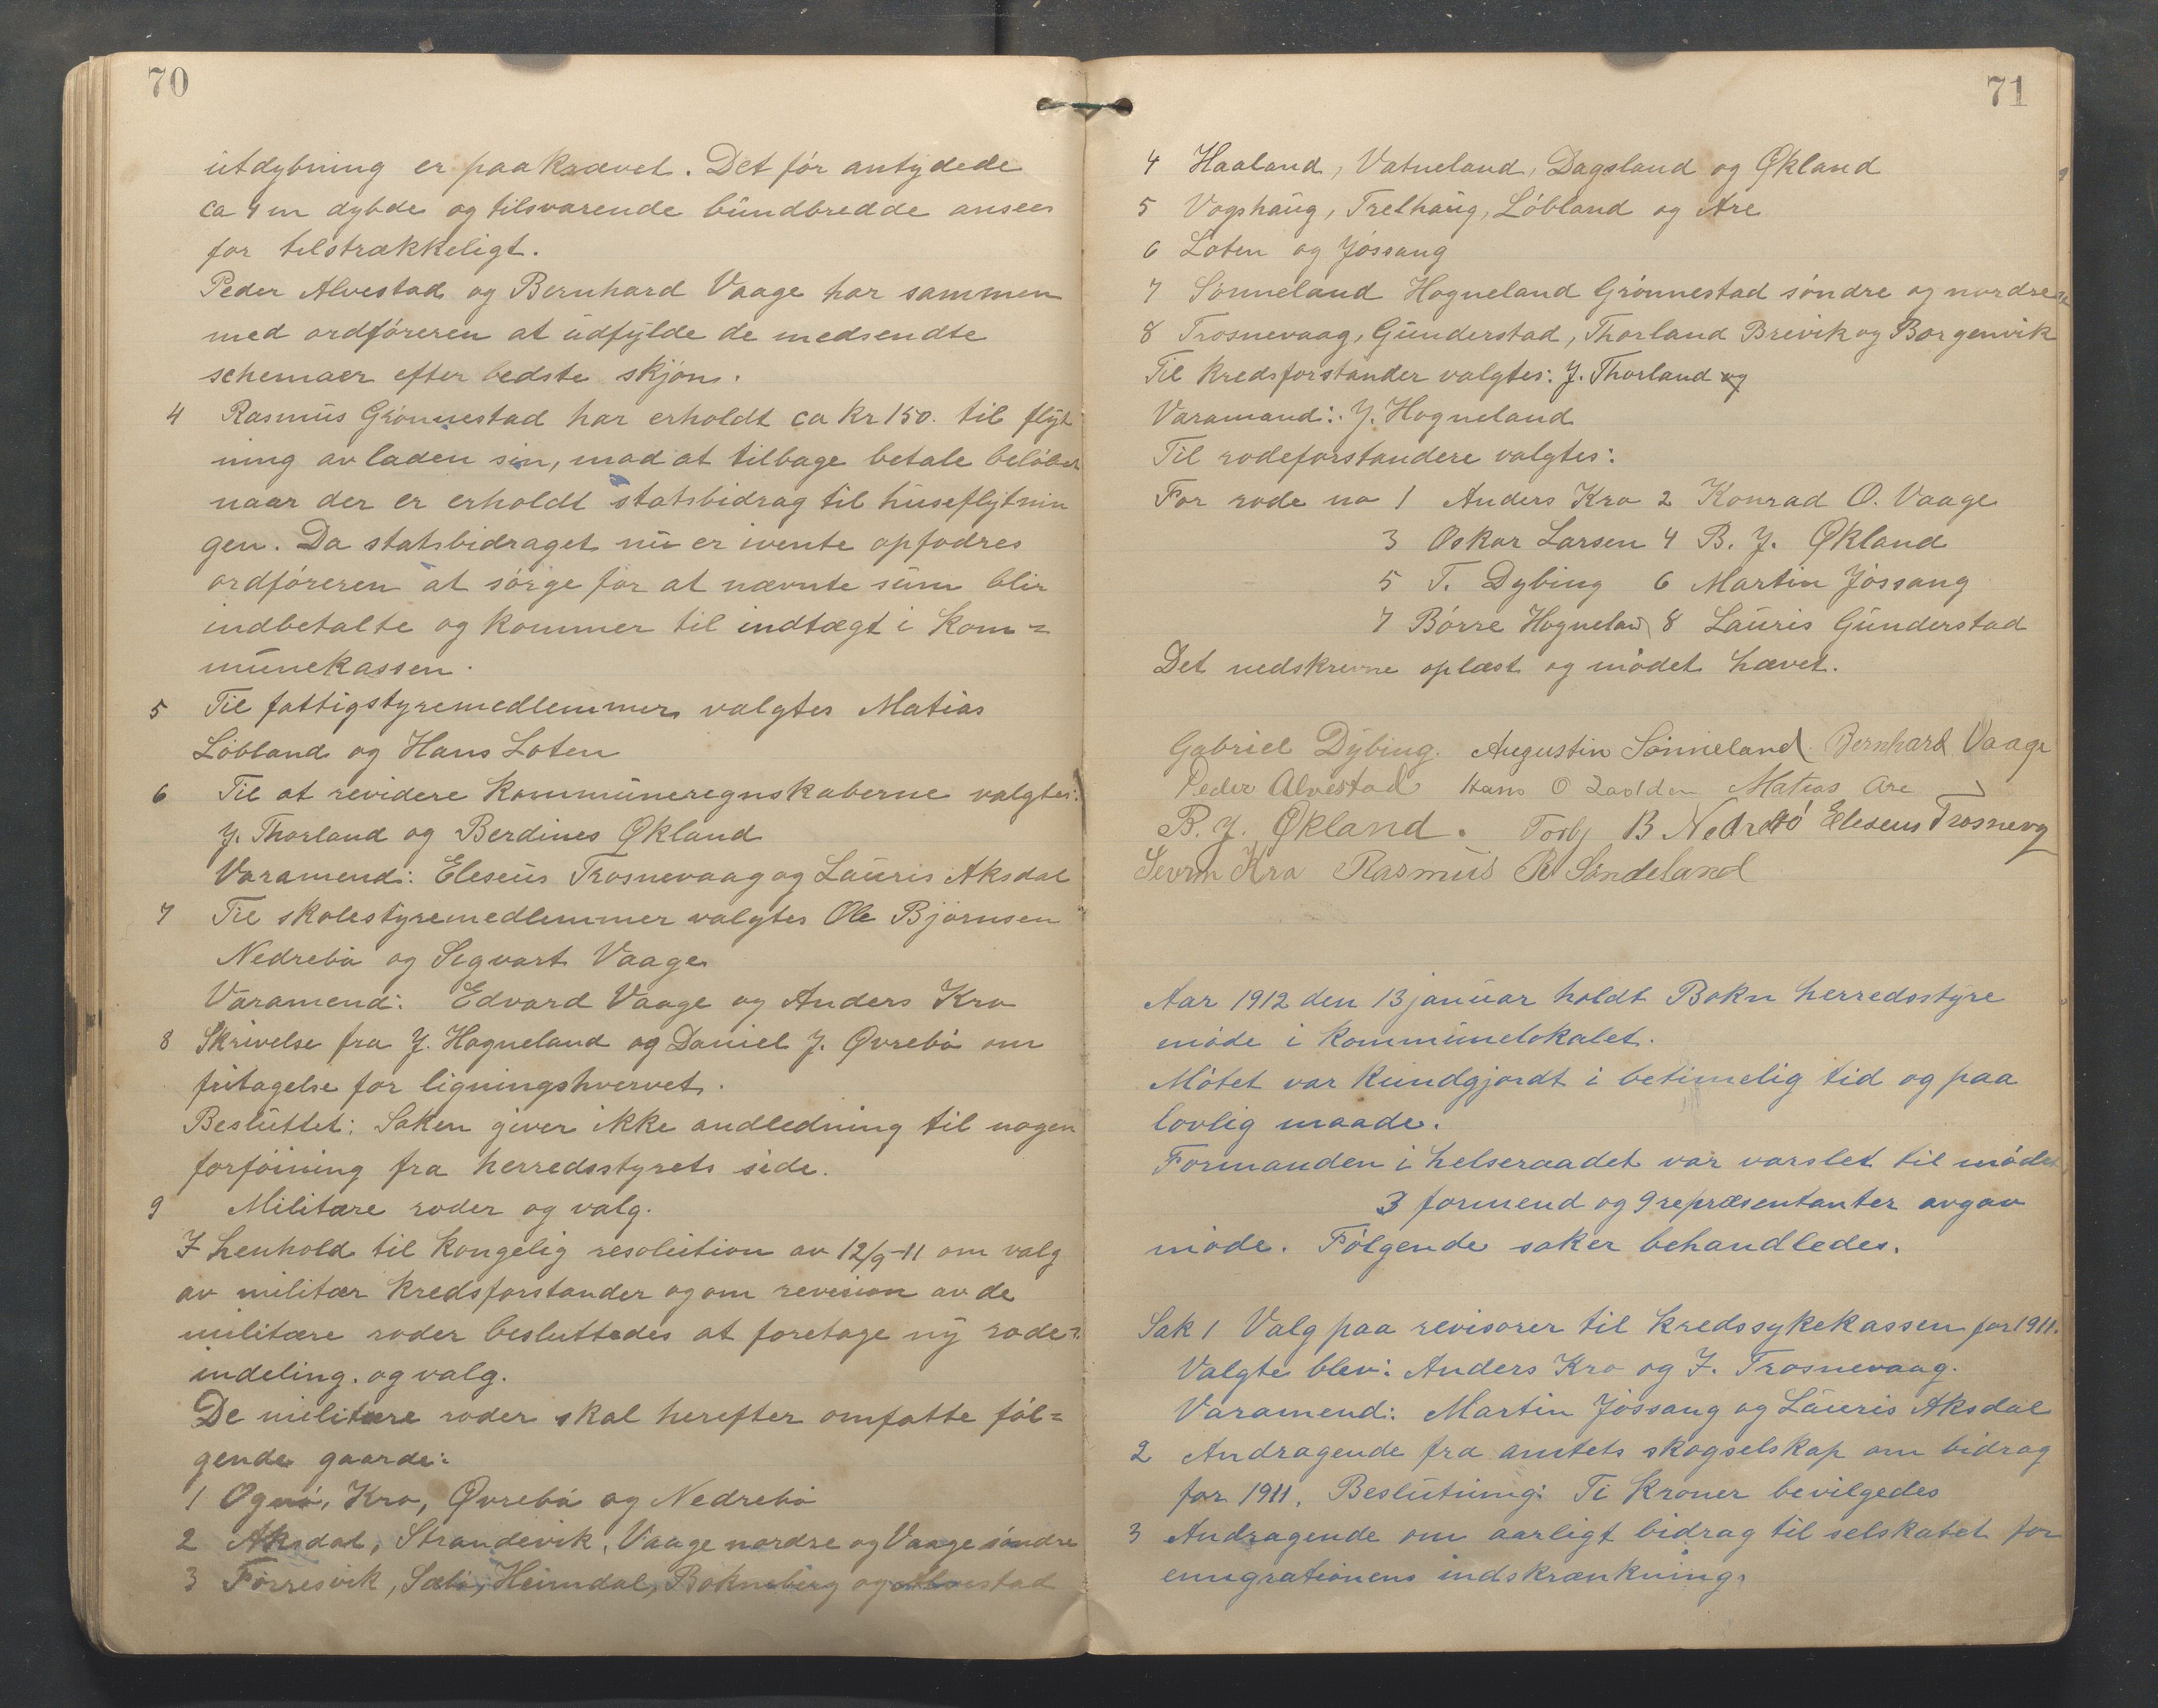 70
utdybning er paakrævet. Det før antydede
ca 4 m dybde og tilsvarende bundbredde ansees
for tilstrækkeligt.
Peder Alvestad og Bernhard Vaage har sammen
med ordføreren at udfylde de medsendte
schemaer efter bedste skjøn.
4 Rasmus Grønnestad har erholdt ca kr 150. til flyt
ning av laden sin, mod at tilbage betale beløbet
naar der er erholdt statsbidrag til huseflytnin
gen. Da statsbidraget nu er ivente opfodres
ordføreren at sørge for at nævnte sum blir
indbetalte og kommer til indtægt i Kom=
munekassen.
5 Til fattigstyremedlemmer valgtes Matias
Løbland og Hans Loten
6 Til at revidere Kommuneregnskaberne valgtes:
J. Thorland og Berdines Økland
Varamend: Eleseus Trosnevaag og Lauris Aksdal
7 Til skolestyremedlemmer valgtes Ole Bjørnsen
Nedrebø og Sigvart Vaage
Varamend: Edvard Vaage og Anders Kro
8 Skrivelse fra J. Hogneland og Daniel J. Øvrebø om
fritagelse for ligningshvervet.
Besluttet: Saken giver ikke andledning til nogen
forføining fra herredsstyrets side.
9 Militære roder og valg.
I henhold til kongelig resolution av 12/9-11 om valg
av militær kredsforstander og om revision av de
militære roder besluttedes at foretage ny rode=
indeling. og valg.
De militære roder skal herefter omfatte føl=
gende gaarde:
1 Ognø, Kro, Øvrebø og Nedrebø
2 Aksdal, Strandevik, Vaage nordre og Vaage søndre
3 Førresvik, Sæbø, Heimdal, Bokneberg og Alvestad
71
4 Haaland, Vatneland, Dagsland og Økland
5 Vogshaug, Trethaug, Løbland og Are
6 Loten og Jøssang
7 Sønneland Hogneland Grønnestad søndre og nordre
8 Trosnevaag, Gunderstad, Thorland Brevik og Borgenvik
Til Kredsforstander valgtes: J. Thorland og
Varamand: J. Hogneland
Til rodeforstandere valgtes:
For rode no 1 Anders Kro 2 Konrad O. Vaage
3 Oskar Larsen 4 B. J. Økland
5 T. Dybing 6 Martin Jøssang
7 Børre Hogneland 8 Lauris Gunderstad
Det nedskrevne oplæst og mødet hævet.
Gabriel Dybing. Augustin Sønneland. Bernhard Vaage
Peder Alvestad Hans O Matias Are
B. J. Økland. B Nedrebø Eleseus Trosnevg
Kro Rasmus R Søndeland
Aar 1912 den 13 januar holdt Bokn herredsstyre
møde i kommunelokalet.
Møtet var kundgjordt i betimelig tid og paa
lovlig maade.
Formanden i helseraadet var varslet til mødet
3 formend og 9 repræsentanter avgav
møde. Følgende saker behandledes.
Sak 1 Valg paa revisorer til kredssykekassen for 1911.
Valgte blev: Anders Kro og I. Trosnevaag.
Varamend: Martin Jøssang og Lauris Aksdal
2 Andragende fra amtets skogselskap om bidrag
for 1911. Beslutning: Ti kroner bevilgedes
3 Andragende om aarligt bidrag til selskabet for
emigrationens indskrænkning.